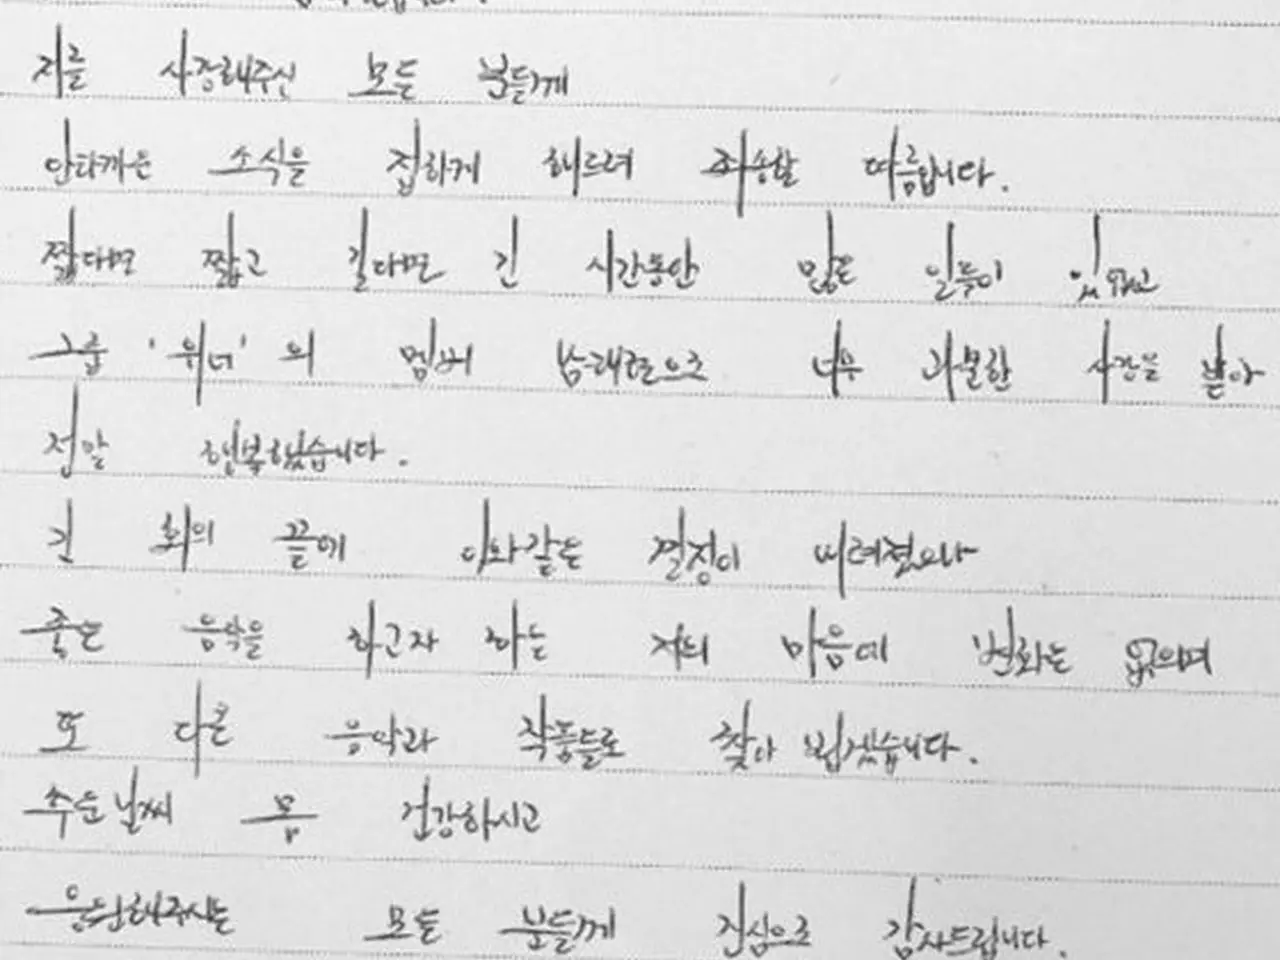 저를 사랑해주신 모든 분들께
안타까운 소식을 접하게 해드려 죄송할 따름입니다.
짧다면 짧고 길다면 긴 시간동안 많은 일들이 있었고
그룹 '위너'의 멤버 남태현으로 너무 과분한 사랑을 받아
정말 행복했습니다.
긴 회의 끝에 이와같은 결정이 내려졌으나
좋은 음악을 하고자 하는 저의 마음에 변화는 없으며
또 다른 음악과 작품들로 찾아 뵙겠습니다.
추운 날씨 몸 건강하시고
응원해주시는 모든 분들께 진심으로 감사드립니다.